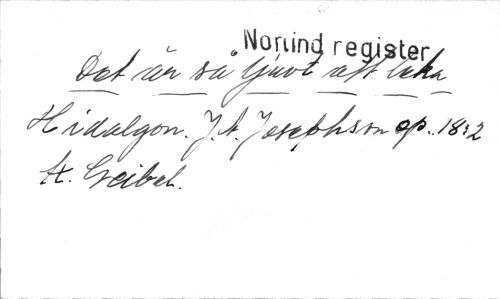 Norlind register
Det är så ljuvt att leka
Hidalgon. J.A. Josephson op. 18:2
H. Geibel.